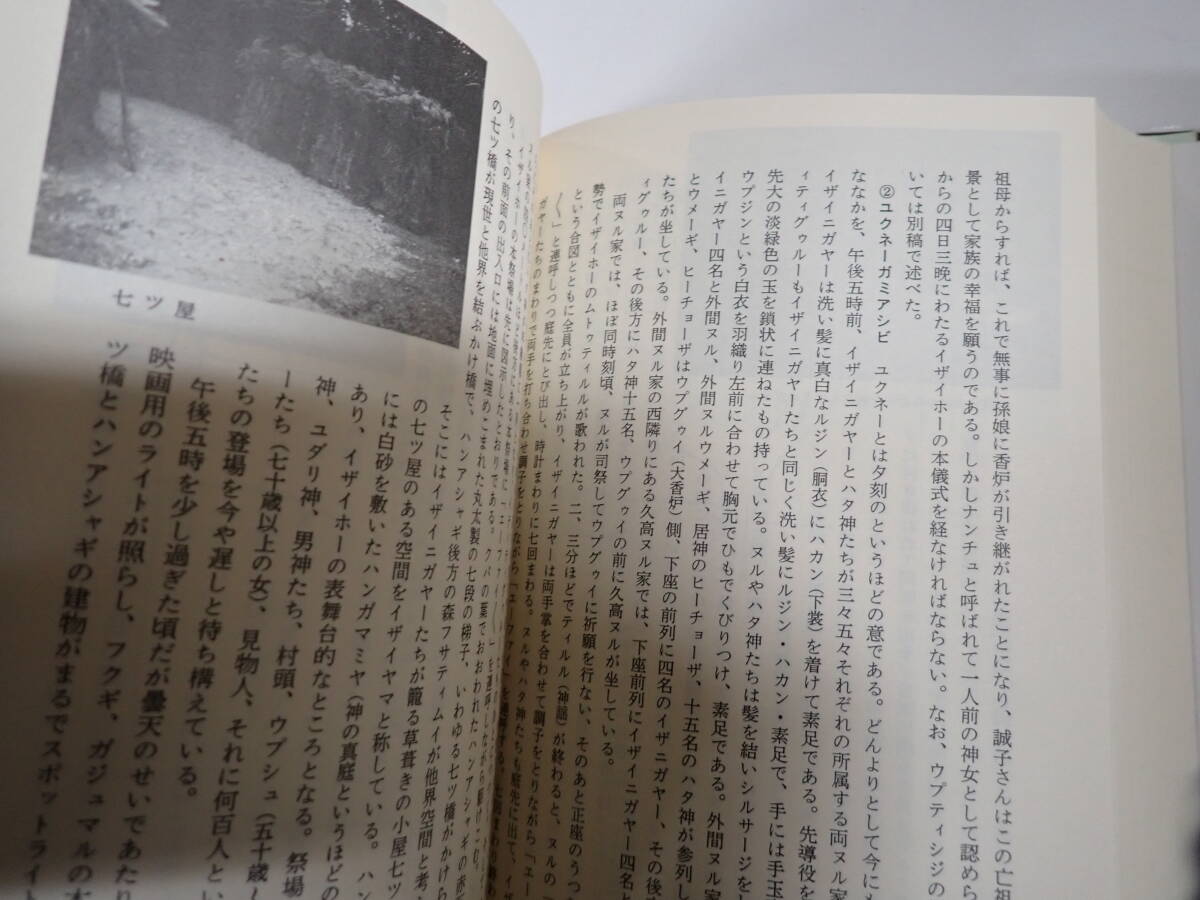 祖母からすれば、これで無事に孫娘に香炉が引き継がれたことになり、誠子さんはこの亡祖
景として家族の幸福を願うのである。しかしナンチュと呼ばれて一人前の神女として認めら
からの四日三晩にわたるイザイホーの本儀式を経なければならない。なお、ウプティシジの
いては別稿で述べた。
②ユクネーガミアシビ　ユクネーとは夕刻のというほどの意である。どんよりとして今にも
ななかを、午後五時前、イザイニガヤーとハタ神たちが三々五々それぞれの所属する両ヌル家
イザイニガヤーは洗い髪に真白なルジン（胴衣）にハカン（下裳）を着けて素足である。先導役を
ィティグゥルーもイザイニガヤーたちと同じく洗い髪にルジン・ハカン・素足で、手には手玉
先大の淡緑色の玉を鎖状に連ねたもの持っている。ヌルやハタ神たちは髪を結いシルサージを
ウプジンという白衣を羽織り左前に合わせて胸元でひもでくびりつけ、素足である。外間ヌル家
イニガヤー四名と外間ヌル、外間ヌルウメーギ、居神のヒーチョーザ、十五名のハタ神が参列し
とウメーギ、ヒーチョーザはウプグゥイ（大香炉）側、下座の前列に四名のイザイニガヤー、その後
たちが坐している。外間ヌル家の西隣りにある久高ヌル家では、下座前列にイザイニガヤー四名と
ィグゥルー、その後方にハタ神十五名、ウプグゥイの前に久高ヌルが坐している。
両ヌル家では、ほぼ同時刻頃、ヌルが司祭してウプグゥイに祈願を行ない、そのあと正座のうつ
勢でイザイホーのムトゥティルルが歌われた。二、三分ほどでティルル（神謡）が終わると、ヌルの「
という合図とともに全員が立ち上がり、イザイニガヤーは両手掌を合わせて調子をとりながら「エー
〱」と連呼しつつ庭先にとび出し、時計まわりに七回まわる。ヌルやハタ神たちも庭先に出て、イザ
ガヤーたちのまわりで両手を打ち合わせ調子をとりながら「エーファイ
イザイホーの本祭場は先に図示したとおりである。クバの葉でおおわれたハンアシャギの赤
り、その前面の出入口には地面に埋めこまれた丸太製の七段の梯子、いわゆる七ツ橋がかけら
の七ツ橋が現世と他界を結ぶかけ橋で、ハンアシャギ後方の森フサティムイが他界空間と考
そこにはイザイニガヤーたちが籠る草葺きの小屋七ツ
の七ツ屋のある空間をイザイヤマと称している。ハン
には白砂を敷いたハンガマミヤ（神の真庭というほどの
あり、イザイホーの表舞台的なところとなる。祭場
神、ユダリ神、男神たち、村頭、ウプシュ（五十歳し
ーたち（七十歳以上の女）、見物人、それに何百人とい
たちの登場を今や遅しと待ち構えている。
午後五時を少し過ぎた頃だが曇天のせいであたり
映画用のライトが照らし、フクギ、ガジュマルの木
ツ橋とハンアシャギの建物がまるでスポットライト
七ツ屋